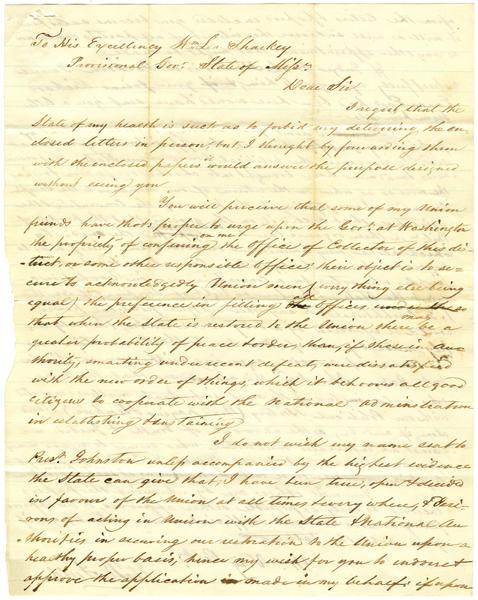 To His Excellency Wm L. Sharkey
Provisional Gov. State of Missi
Dear Sir
I regret that the
State of my health is such as to forbid my delivering the en-
closed letters in person, but I thought by forwarding them
with the enclosed papers would answer the purpose designed
without seeing you.
You will perceive that some of my Union
friends have thot proper to urge upon the Gov. at Washington
the propriety of confering on me, the Office of Collector of this dis-
trict, or some other responsible Office; their object is to se-
cure to acknowledgedly Union men (every thing else being
equal) the preference in filling the Offices so
that when the State is restored to the Union there may be a
greater probability of peace & order, than, if those in au-
thority, smarting under recent defeat, were dissatisfied
with the new order of things, which it behooves all good
citizens to cooperate with the National administration
in establishing & sustaining
I do not wish my name sent to
Prest. Johnston unless accompanied by the highest evidence
the State can give that; I have been true, open & decided
in favour of the Union at all times & every where, & desi-
rous of acting in Unison with the State & National Au-
thorities in securing our restoration to the Union upon a
healthy proper basis; hence my wish for you to endorse &
approve the application made in my behalf; if upon